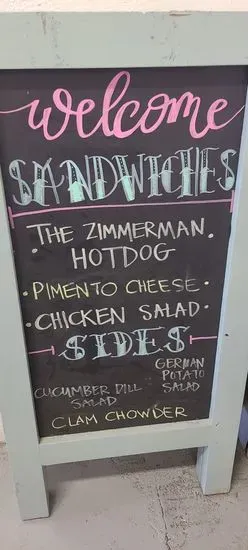 welcome
SANDWICHES
THE ZIMMERMAN
HOTDOG
• PIMENTO CHEESE •
• CHICKEN SALAD •
SIDES
GERMAN
POTATO
SALAD
CUCUMBER DILL
SALAD
CLAM CHOWDER